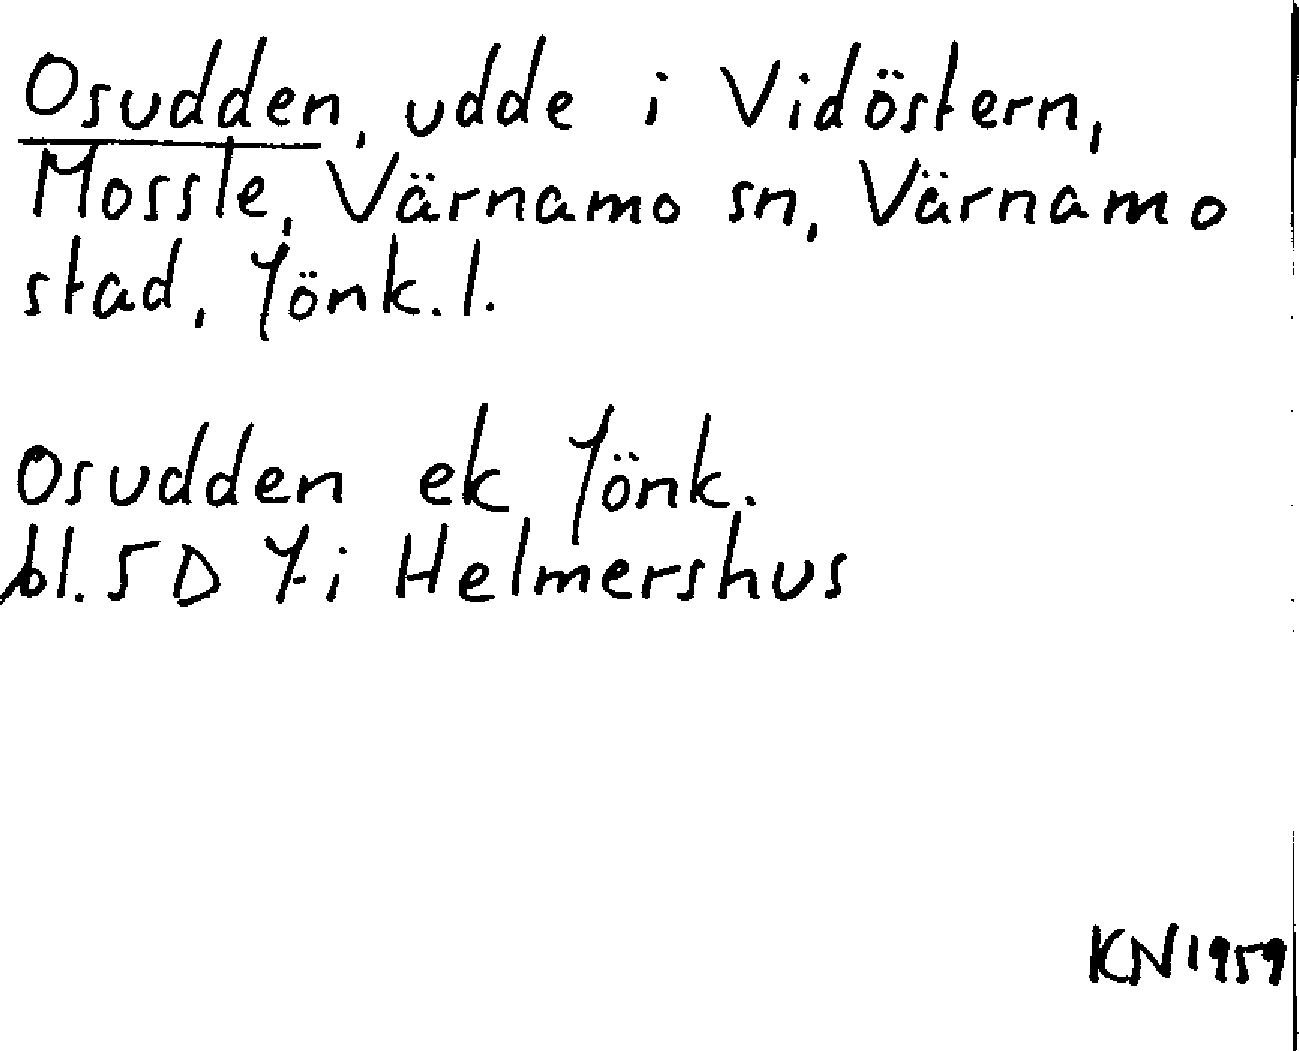 Osudden, udde i Vidöstern,
Mossle, Värnamo sn, Värnamo
stad, Jönk. l.
Osudden ek Jönk.
bl. 5 D 7 i Helmershus
KN 1959